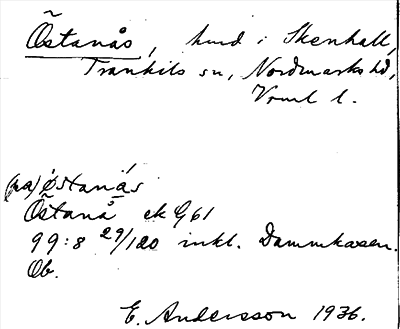 Östanås, hmd i Skenhall,
Trankils sn, Nordmarks hd,
Vrml l.
(na) ɷ́stanás
Östanå ek G61
99:8 29/120 inkl. Dammkasen.
Ob.
E. Andersson 1936.